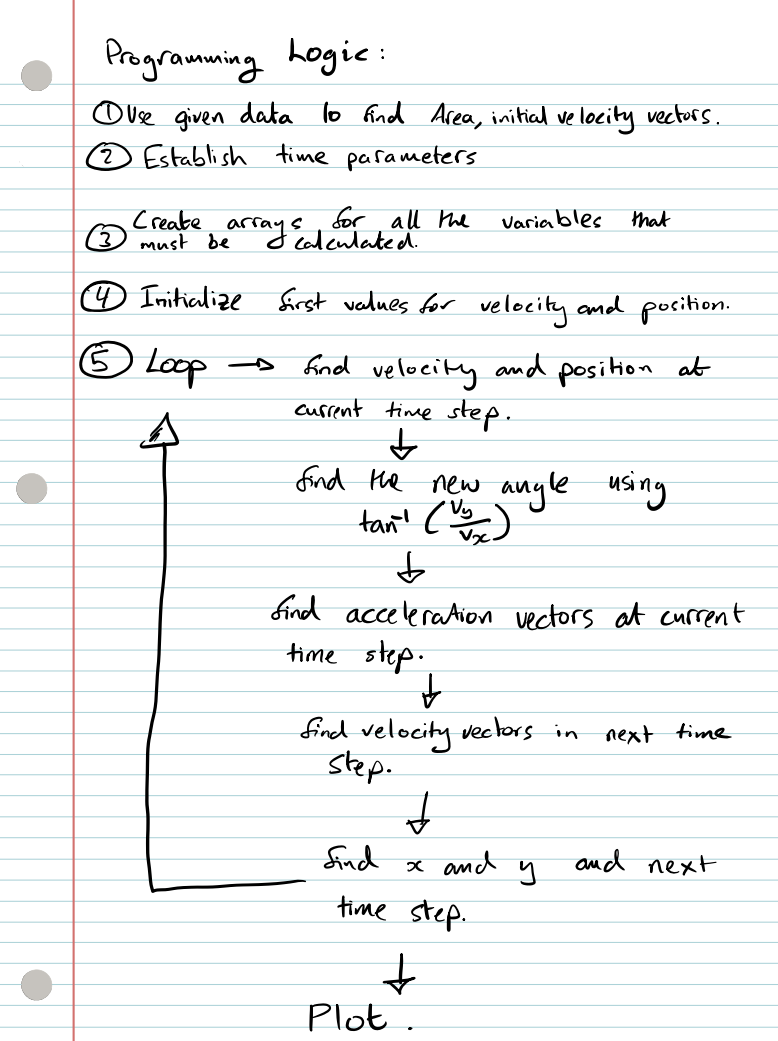 Programming Logic:
① Use given data to find Area, initial velocity vectors.
② Establish time parameters
③ Create arrays for all the variables that
must be calculated.
④ Initialize first values for velocity and position.
⑤ Loop → find velocity and position at
current time step.
↓
find the new angle using
tan⁻¹ (Vy/Vx)
↓
find acceleration vectors at current
time step.
↓
find velocity vectors in next time
step.
↓
find x and y and next
time step.
↓
Plot.